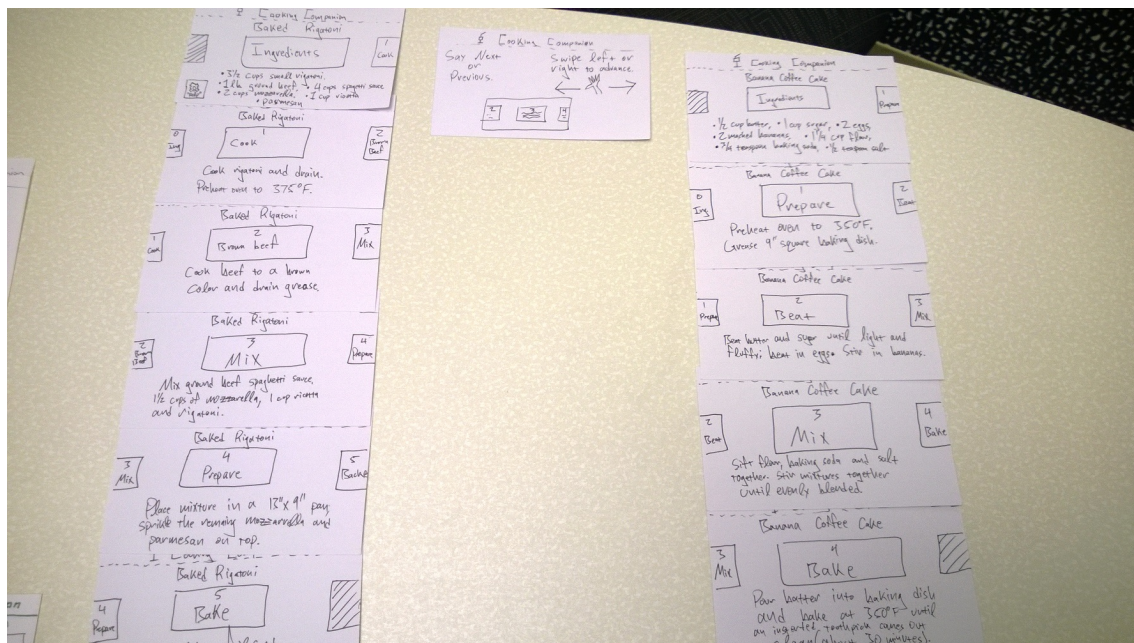 Cooking Companion
Baked Rigatoni
Ingredients
1
Cook
• 3½ cups small rigatoni.
• 1 lb ground beef • 4 cups spaghetti sauce
• 2 cups mozzarella. • 1 cup ricotta
• parmesan
Baked Rigatoni
0
Ing
1
Cook
2
Brown
Beef
Cook rigatoni and drain.
Preheat oven to 375°F.
Baked Rigatoni
1
Cook
2
Brown beef
3
Mix
Cook beef to a brown
color and drain grease
Baked Rigatoni
2
Brown
Beef
3
Mix
4
Prepare
Mix ground beef spaghetti sauce,
1½ cups of mozzarella, 1 cup ricotta
and rigatoni.
Baked Rigatoni
3
Mix
4
Prepare
5
Place mixture in a 13"x 9" pan,
the remaining mozzarella and
parmesan on top.
Baked Rigatoni
4
Prepare
5
Bake
Cooking Companion
Say Next
or
Previous.
Swipe left or
right to advance.
Cooking Companion
Banana Coffee Cake
Ingredients
1
Prepare
• ½ cup butter, • 1 cup sugar, • 2 eggs,
• 2 mashed bananas, • 1 ¼ cup flour,
• ¾ teaspoon baking soda, • ½ teaspoon salt
Banana Coffee Cake
0
Ing
1
Prepare
2
Beat
Preheat oven to 350°F.
Grease 9" square baking dish.
Banana Coffee Cake
1
Prepare
2
Beat
3
Mix
Beat butter and sugar until light and
fluffy; beat in eggs. Stir in bananas.
Banana Coffee Cake
2
Beat
3
Mix
4
Bake
Sift flour, baking soda and salt
together. Stir mixtures together
until evenly blended.
Banana Coffee Cake
3
Mix
4
Bake
Pour batter into baking dish
and bake at 350°F until
an inserted toothpick comes out
clean (about 30 minutes).